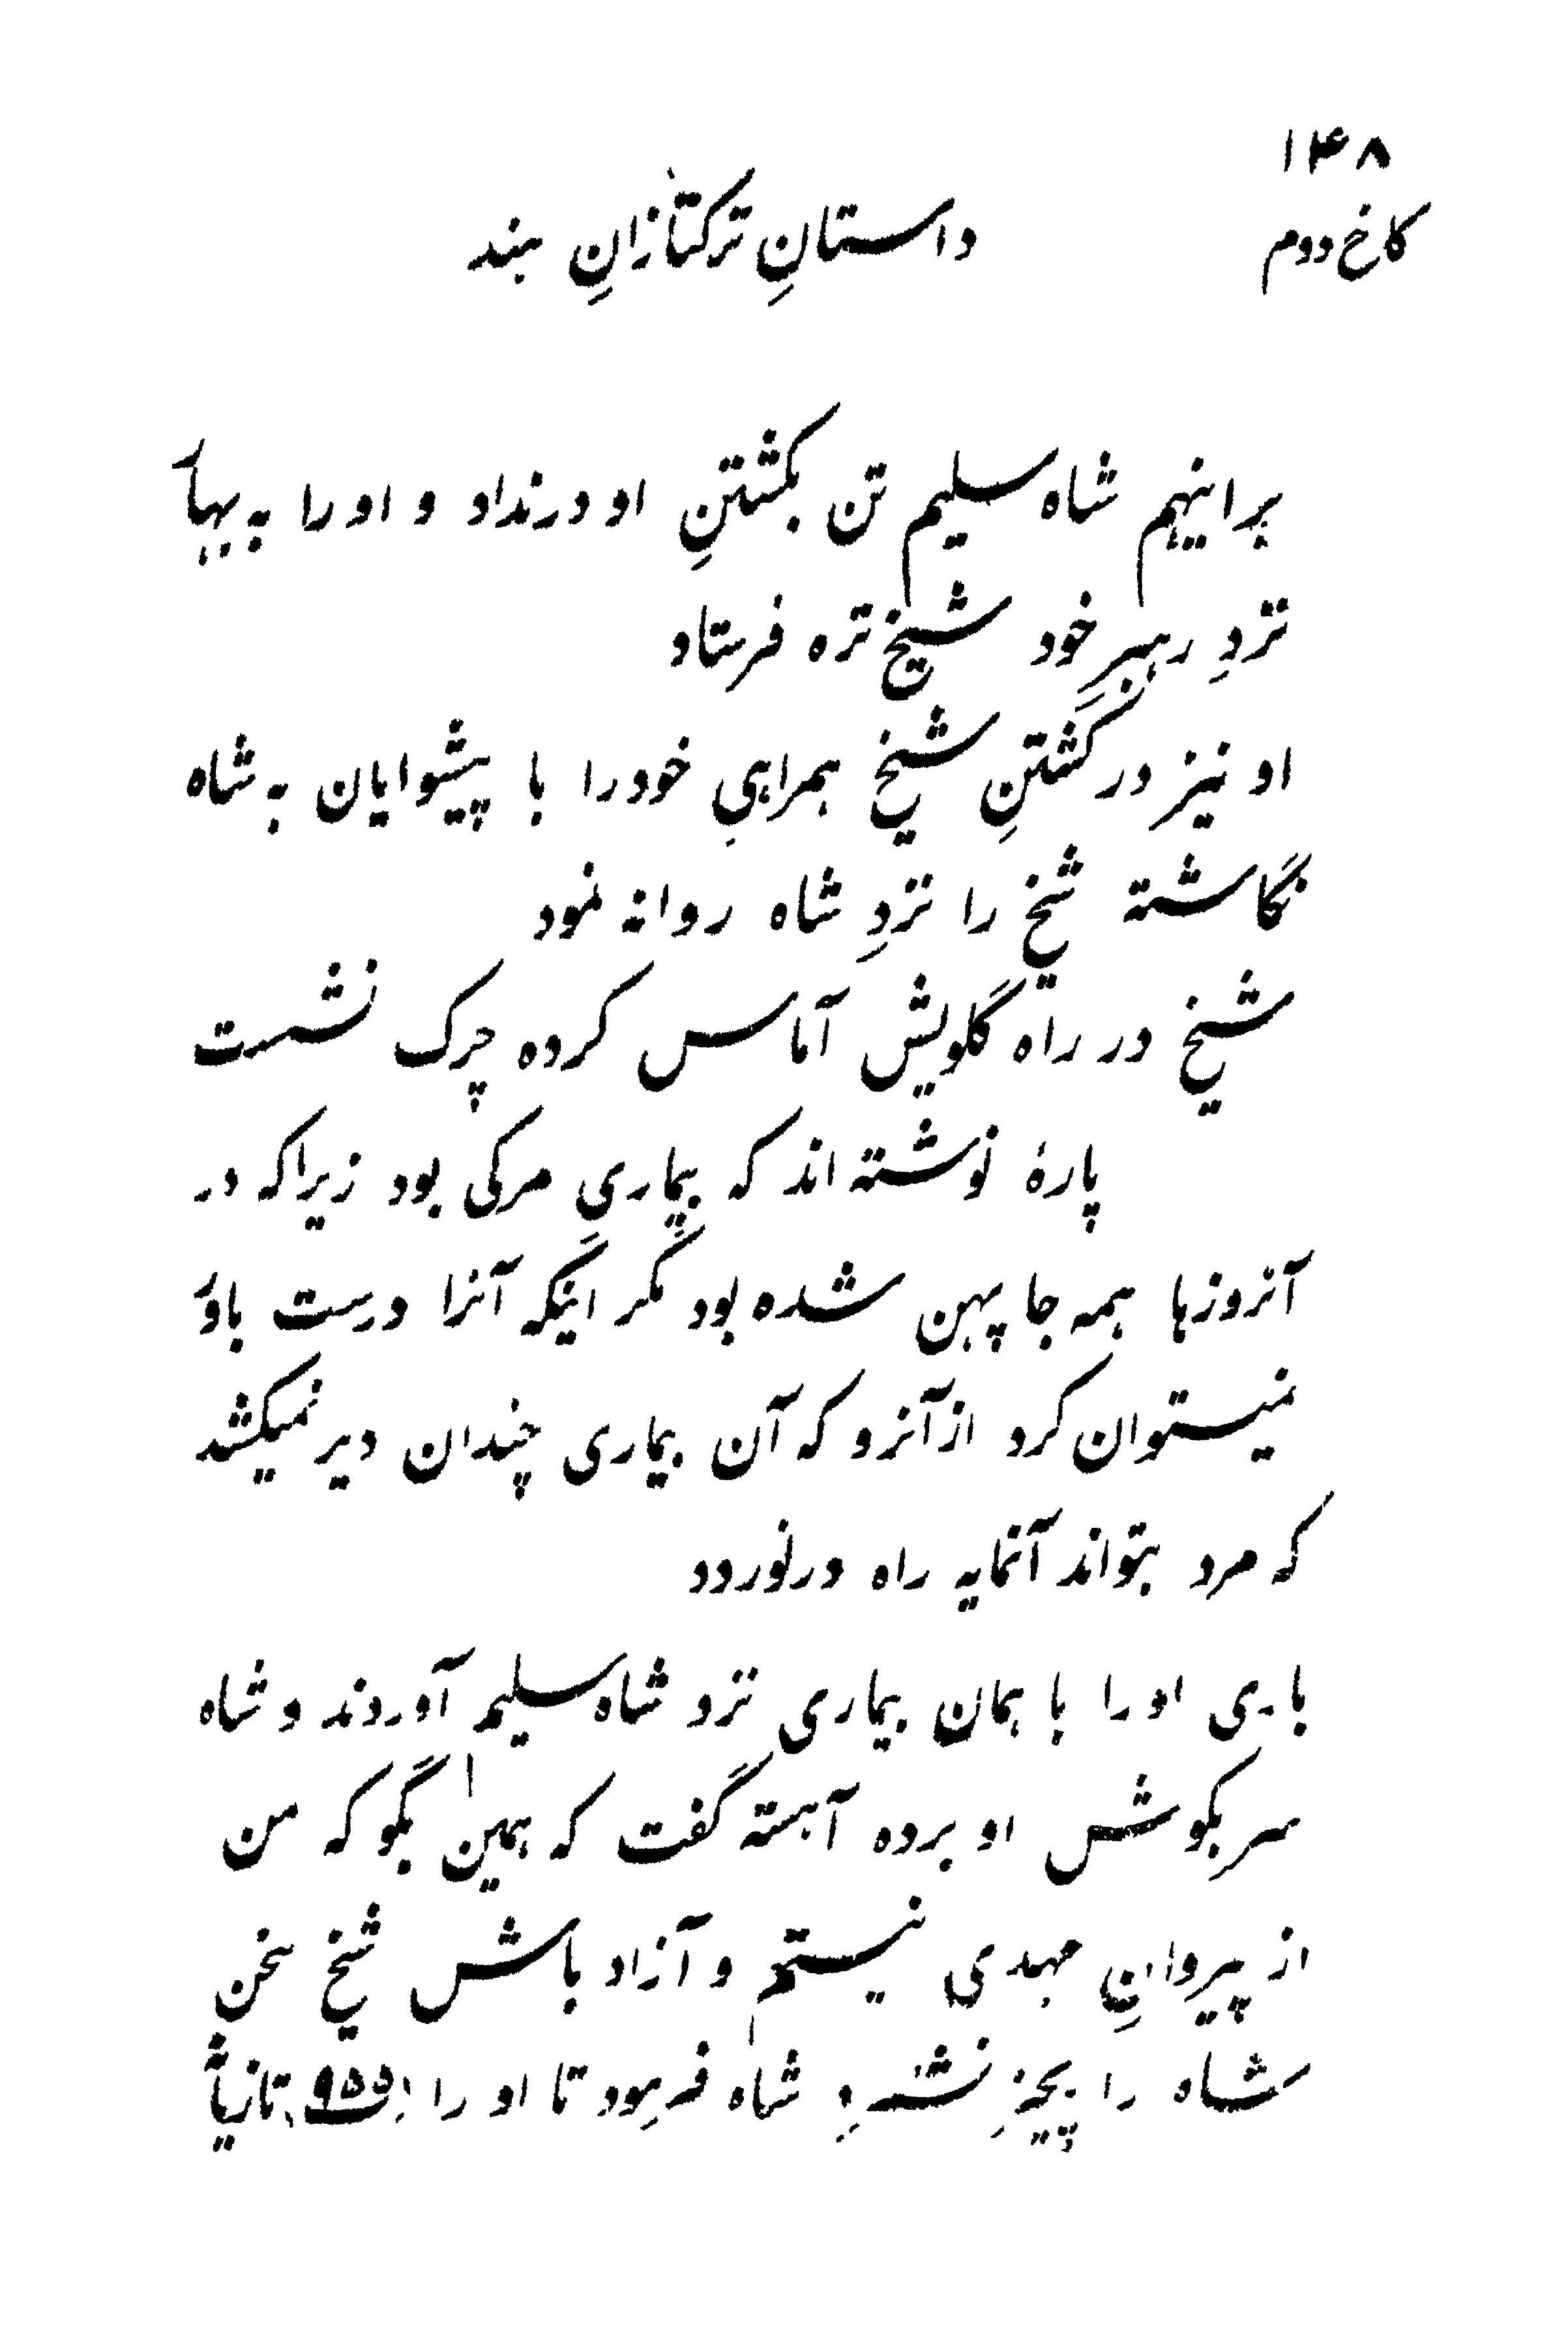 ۱۴۸
کاخ دوم
داستانِ ترکتازانِ هند
براینهم شاه سلیم تن بکشتنِ او درنداد و او را به بهار
نزدِ رهبرِ خود شیخ تره فرستاد
او نیز در کشتنِ شیخ همراهیِ خود را با پیشوایان به شاه
نگاشته شیخ را نزدِ شاه روانه نمود
شیخ در راه گلویش آماس کرده چرک نشست
پارهٔ نوشته اند که بیماریِ مرگی بود زیرا که در
آنروزها همه جا پهن شده بود مگر اینکه آنرا درست باور
نمیتوان کرد از آنرو که آن بیماری چندان دیر نمیکشد
که مرد بتواند آنمایه راه درنوردد
باری او را با همان بیماری نزد شاه سلیم آوردند و شاه
سر بگوش او برده آهسته گفت که همین بگو که من
از پیروانِ مهدی نیستم و آزاد باش شیخ سخن
شاه را بچیزِ نشمرد شاه فرمود تا او را ۹۵۵ تازیانه